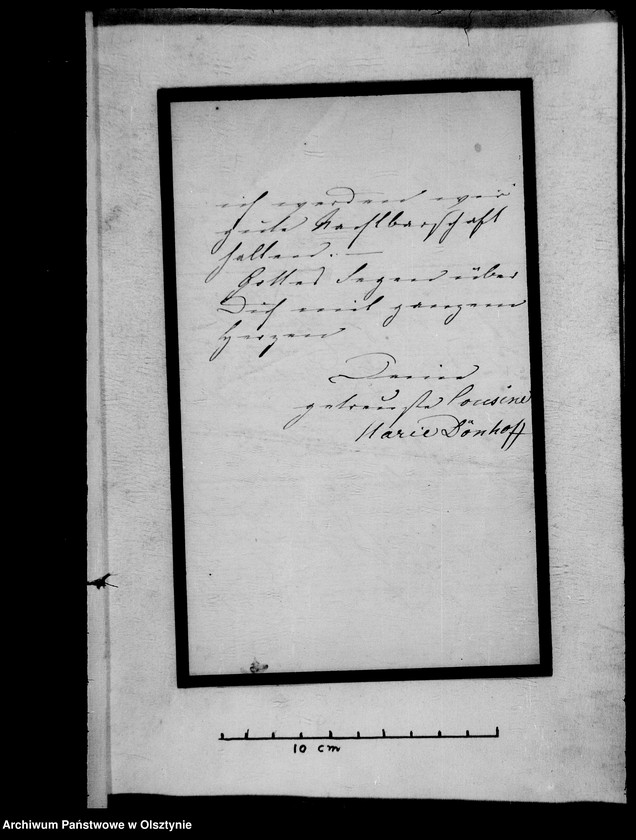 ich werden wir
gute Nachbarschaft
halten. —
Gottes Segen über
Dich mit ganzem
Herzen
Deine
getreuste Cousine
Marie Dönhoff
10 cm
Archiwum Państwowe w Olsztynie